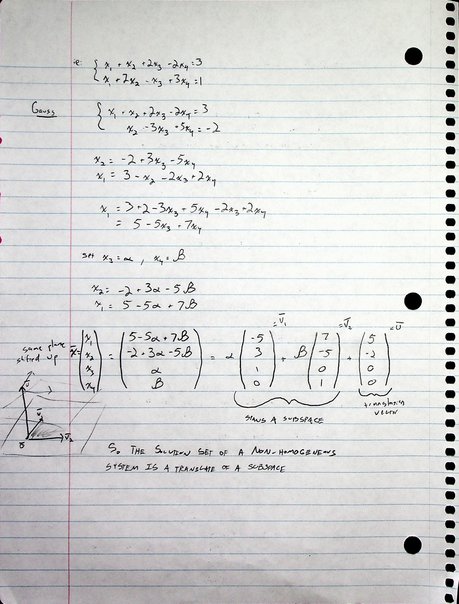 e: { x₁ + x₂ + 2x₃ - 2x₄ = 3
x₁ + 2x₂ - x₃ + 3x₄ = 1
Gauss { x₁ + x₂ + 2x₃ - 2x₄ = 3
x₂ - 3x₃ + 5x₄ = -2
x₂ = -2 + 3x₃ - 5x₄
x₁ = 3 - x₂ - 2x₃ + 2x₄
x₁ = 3 + 2 - 3x₃ + 5x₄ - 2x₃ + 2x₄
= 5 - 5x₃ + 7x₄
set x₃ = α, x₄ = β
x₂ = -2 + 3α - 5β
x₁ = 5 - 5α + 7β
same plane
shifted up
x̄ = (x₁ x₂ x₃ x₄) = (5-5α+7β -2+3α-5β α β) = α (-5 3 1 0) = v̄₁ + β (7 -5 0 1) = v̄₂ + (5 -2 0 0) = ū
spans a subspace
translation
vector
ū
v̄₁
v̄₂
ō
So the solution set of a non-homogeneous
system is a translate of a subspace